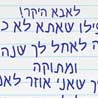 לאבא היקר!
פילו שאתא לא כ
ה לאחל לך שנה
ומתוקה
ך שאני אוזר לאמ